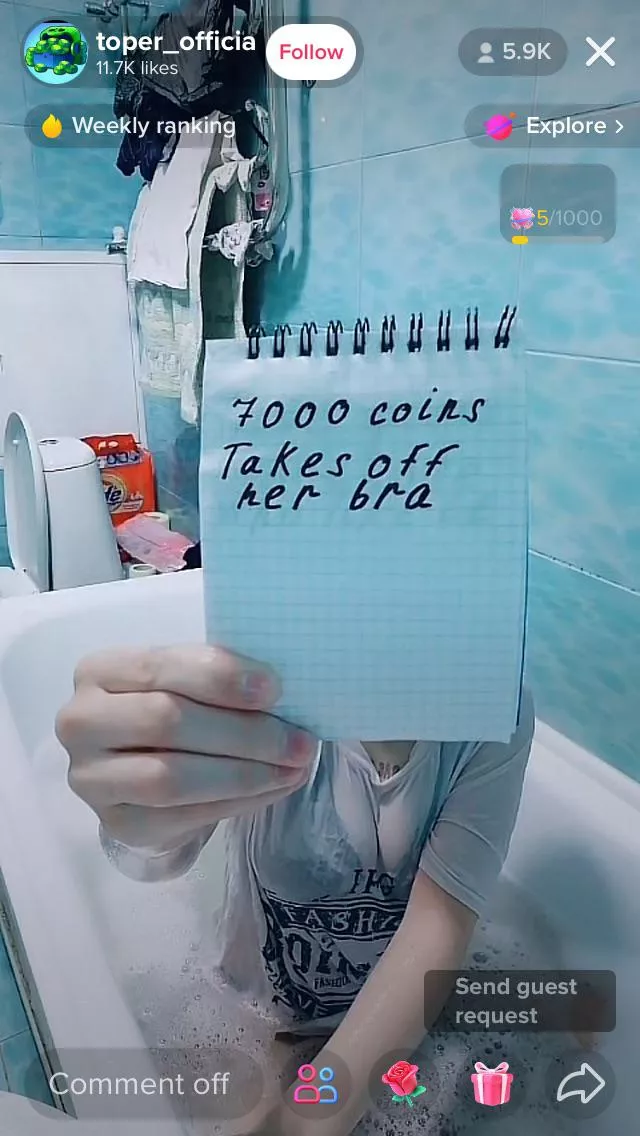 toper_officia
11.7K likes
Follow
5.9K
Weekly ranking
Explore >
5/1000
7000 coins
Takes off
her bra
FASHI
Send guest
request
Comment off